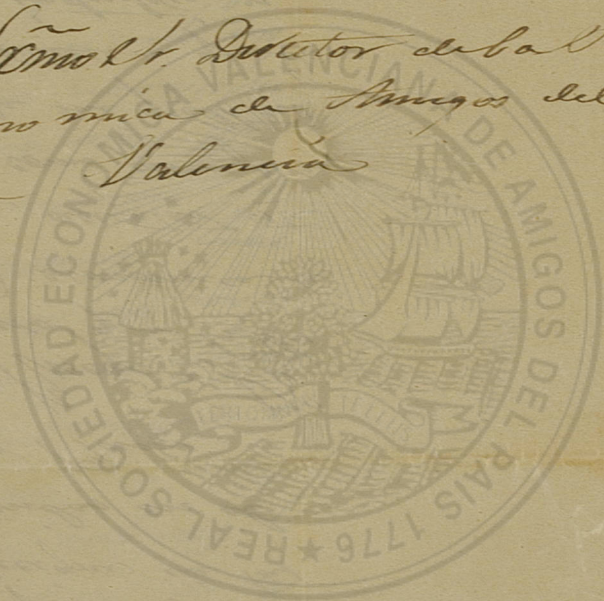 Exmo Sr. Director de la
nomica de Amigos del
Valencia
REAL SOCIEDAD ECONOMICA VALENCIANA DE AMIGOS DEL PAIS 1776